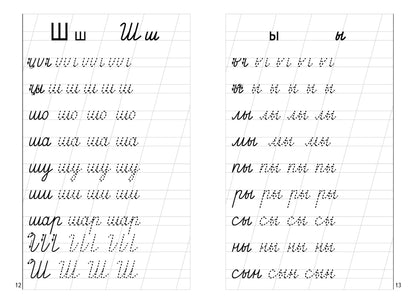 Ш ш Ш ш
шо шо шо
ша ша ша
шу шу шу шу
ши ши ши ши
шар шар шар
Ш Ш Ш Ш
12
ы ы
лы лы лы лы
мы мы мы
пы пы пы пы
ры ры ры ры
сы сы сы сы
ны ны ны ны
сын сын сын
13